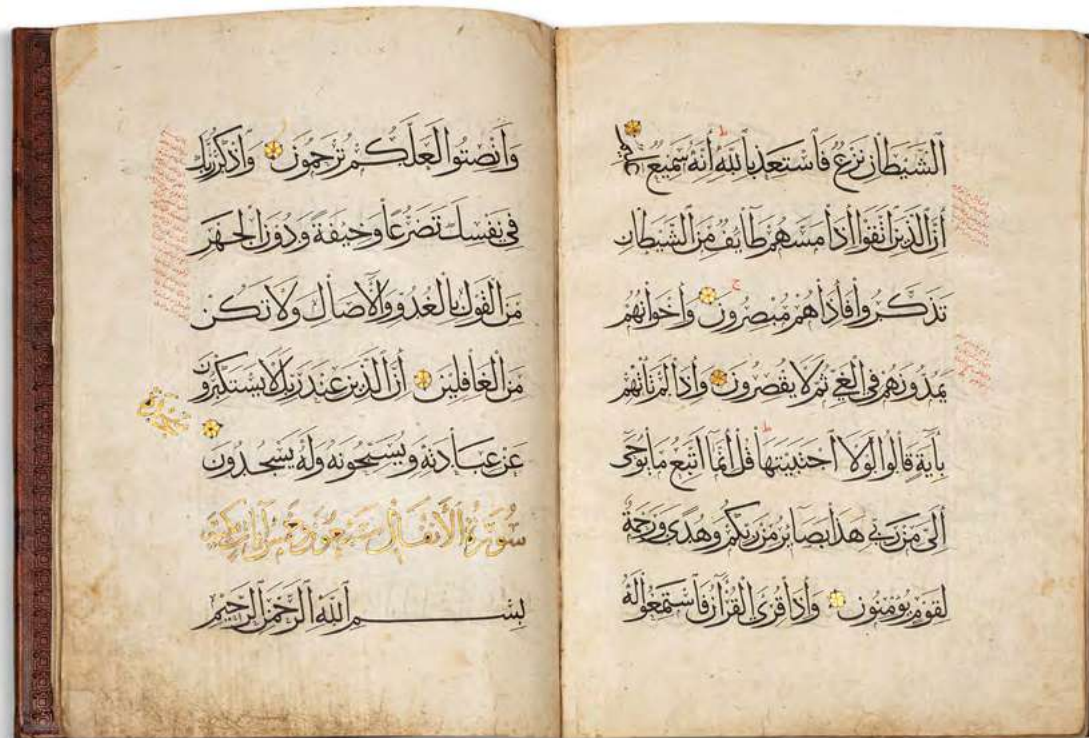 الشيطان نزغ فاستعذ بالله أنه سميع عليم
أن الذين اتقوا أذا مسهم طايف من الشيطان
تذكروا فأذا هم مبصرون وأخوانهم
يمدونهم في الغي ثم لا يقصرون وأذا لم تأتهم
بآية قالوا لولا اجتبيتها قل أنما أتبع ما يوحى
ألى من ربي هذا بصاير من ربكم وهدى ورحمة
لقوم يومنون وأذا قرئ القرآن فاستمعوا له
وأنصتوا لعلكم ترحمون واذكر ربك
في نفسك تضرعا وخيفة ودون الجهر
من القول بالغدو والآصال ولا تكن
من الغافلين أن الذين عند ربك لا يستكبرون
عن عبادته ويسبحونه وله يسجدون
سورة الأنفال سبعون وخمس آيات
بسم الله الرحمن الرحيم